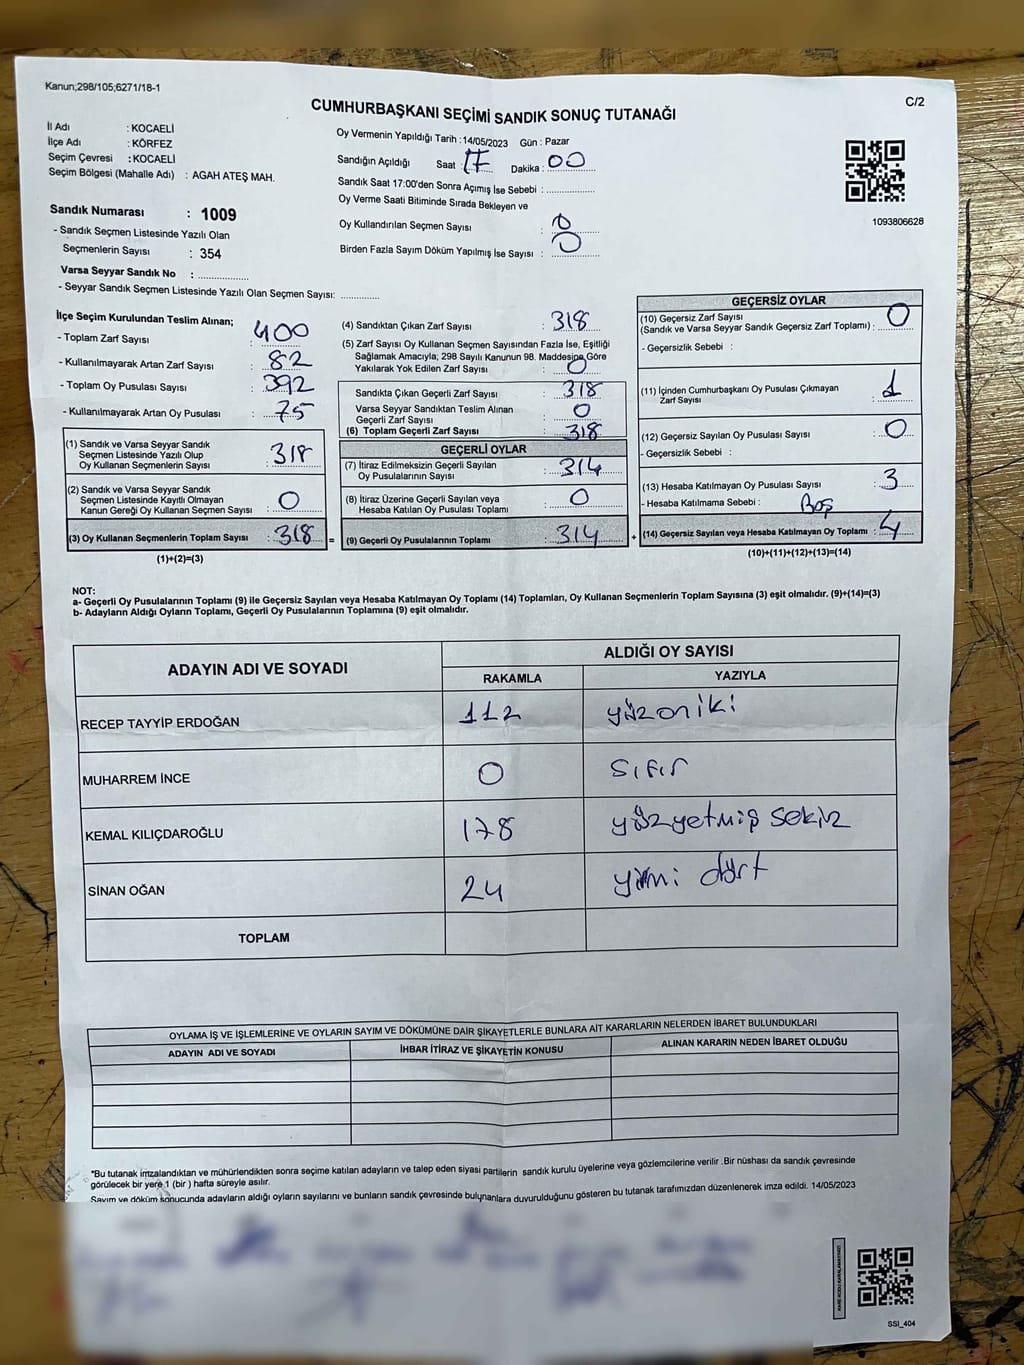 Kanun;298/105;6271/18-1
C/2
CUMHURBAŞKANI SEÇİMİ SANDIK SONUÇ TUTANAĞI
İl Adı : KOCAELİ
İlçe Adı : KÖRFEZ
Seçim Çevresi : KOCAELİ
Seçim Bölgesi (Mahalle Adı) : AGAH ATEŞ MAH.
Sandık Numarası : 1009
- Sandık Seçmen Listesinde Yazılı Olan
Seçmenlerin Sayısı : 354
Varsa Seyyar Sandık No : ................
- Seyyar Sandık Seçmen Listesinde Yazılı Olan Seçmen Sayısı: ............
Oy Vermenin Yapıldığı Tarih :14/05/2023 Gün : Pazar
Sandığın Açıldığı Saat : 17 Dakika : 00
Sandık Saat 17:00'den Sonra Açımış İse Sebebi : ...............
Oy Verme Saati Bitiminde Sırada Bekleyen ve
Oy Kullandırılan Seçmen Sayısı : 0
Birden Fazla Sayım Döküm Yapılmış İse Sayısı : 0
1093806628
İlçe Seçim Kurulundan Teslim Alınan;
- Toplam Zarf Sayısı : 400
- Kullanılmayarak Artan Zarf Sayısı : 82
- Toplam Oy Pusulası Sayısı : 392
- Kullanılmayarak Artan Oy Pusulası : 75
(1) Sandık ve Varsa Seyyar Sandık
Seçmen Listesinde Yazılı Olup
Oy Kullanan Seçmenlerin Sayısı : 318
(2) Sandık ve Varsa Seyyar Sandık
Seçmen Listesinde Kayıtlı Olmayan
Kanun Gereği Oy Kullanan Seçmen Sayısı : 0
(3) Oy Kullanan Seçmenlerin Toplam Sayısı : 318 =
(1)+(2)=(3)
(4) Sandıktan Çıkan Zarf Sayısı : 318
(5) Zarf Sayısı Oy Kullanan Seçmen Sayısından Fazla İse, Eşitliği
Sağlamak Amacıyla; 298 Sayılı Kanunun 98. Maddesine Göre
Yakılarak Yok Edilen Zarf Sayısı : 0
Sandıkta Çıkan Geçerli Zarf Sayısı : 318
Varsa Seyyar Sandıktan Teslim Alınan
Geçerli Zarf Sayısı : 0
(6) Toplam Geçerli Zarf Sayısı : 318
GEÇERLİ OYLAR
(7) İtiraz Edilmeksizin Geçerli Sayılan
Oy Pusulalarının Sayısı : 314
(8) İtiraz Üzerine Geçerli Sayılan veya
Hesaba Katılan Oy Pusulası Toplamı : 0
(9) Geçerli Oy Pusulalarının Toplamı : 314 +
GEÇERSİZ OYLAR
(10) Geçersiz Zarf Sayısı
(Sandık ve Varsa Seyyar Sandık Geçersiz Zarf Toplamı) : 0
- Geçersizlik Sebebi :
(11) İçinden Cumhurbaşkanı Oy Pusulası Çıkmayan
Zarf Sayısı : 1
(12) Geçersiz Sayılan Oy Pusulası Sayısı : 0
- Geçersizlik Sebebi :
(13) Hesaba Katılmayan Oy Pusulası Sayısı : 3
- Hesaba Katılmama Sebebi : Boş
(14) Geçersiz Sayılan veya Hesaba Katılmayan Oy Toplamı : 4
(10)+(11)+(12)+(13)=(14)
NOT:
a- Geçerli Oy Pusulalarının Toplamı (9) ile Geçersiz Sayılan veya Hesaba Katılmayan Oy Toplamı (14) Toplamları, Oy Kullanan Seçmenlerin Toplam Sayısına (3) eşit olmalıdır. (9)+(14)=(3)
b- Adayların Aldığı Oyların Toplamı, Geçerli Oy Pusulalarının Toplamına (9) eşit olmalıdır.
ADAYIN ADI VE SOYADI
ALDIĞI OY SAYISI
RAKAMLA YAZIYLA
RECEP TAYYİP ERDOĞAN 112 yüzoniki
MUHARREM İNCE 0 Sıfır
KEMAL KILIÇDAROĞLU 178 yüzyetmiş sekiz
SİNAN OĞAN 24 yirmi dört
TOPLAM
OYLAMA İŞ VE İŞLEMLERİNE VE OYLARIN SAYIM VE DÖKÜMÜNE DAİR ŞİKAYETLERLE BUNLARA AİT KARARLARIN NELERDEN İBARET BULUNDUKLARI
ADAYIN ADI VE SOYADI İHBAR İTİRAZ VE ŞİKAYETİN KONUSU ALINAN KARARIN NEDEN İBARET OLDUĞU
*Bu tutanak imzalandıktan ve mühürlendikten sonra seçime katılan adayların ve talep eden siyasi partilerin sandık kurulu üyelerine veya gözlemcilerine verilir .Bir nüshası da sandık çevresinde
görülecek bir yere 1 (bir ) hafta süreyle asılır.
Sayım ve döküm sonucunda adayların aldığı oyların sayılarını ve bunların sandık çevresinde bulunanlara duyurulduğunu gösteren bu tutanak tarafımızdan düzenlenerek imza edildi. 14/05/2023
SSI_404